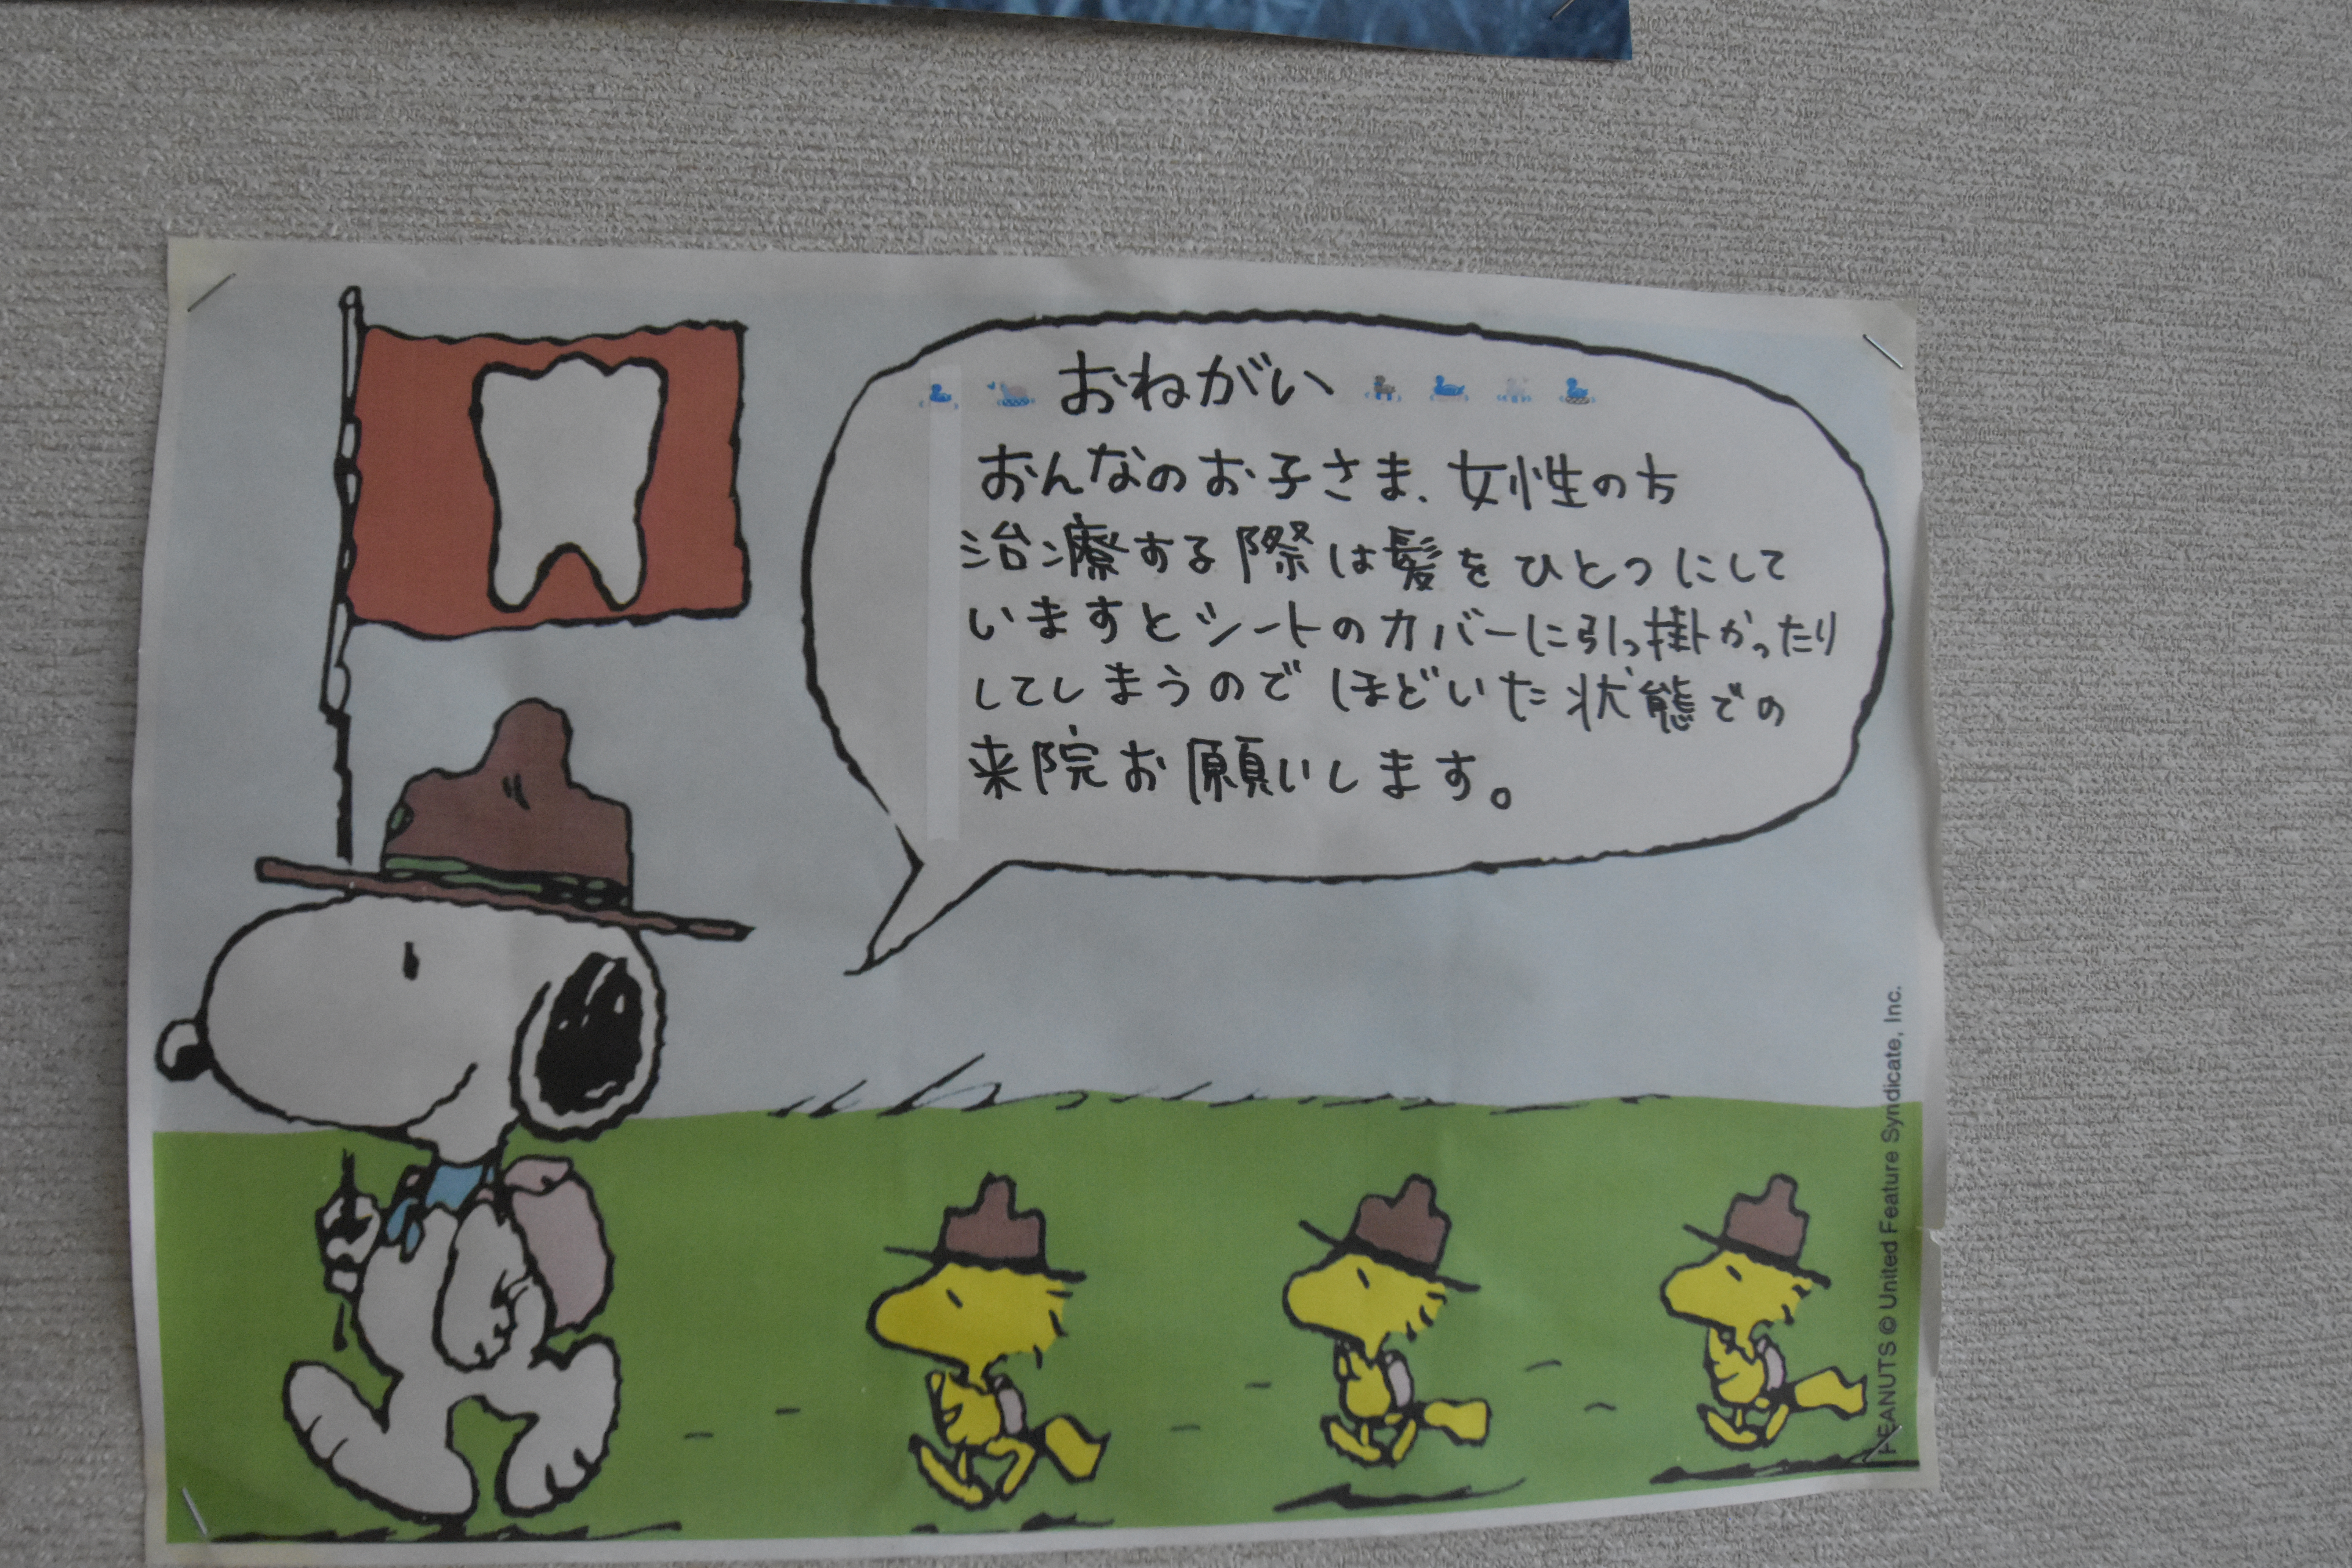 おねがい
おんなのお子さま、女性の方
治療する際は髪をひとつにして
いますとシートのカバーに引っ掛かったり
してしまうのでほどいた状態での
来院お願いします。
PEANUTS © United Feature Syndicate, Inc.